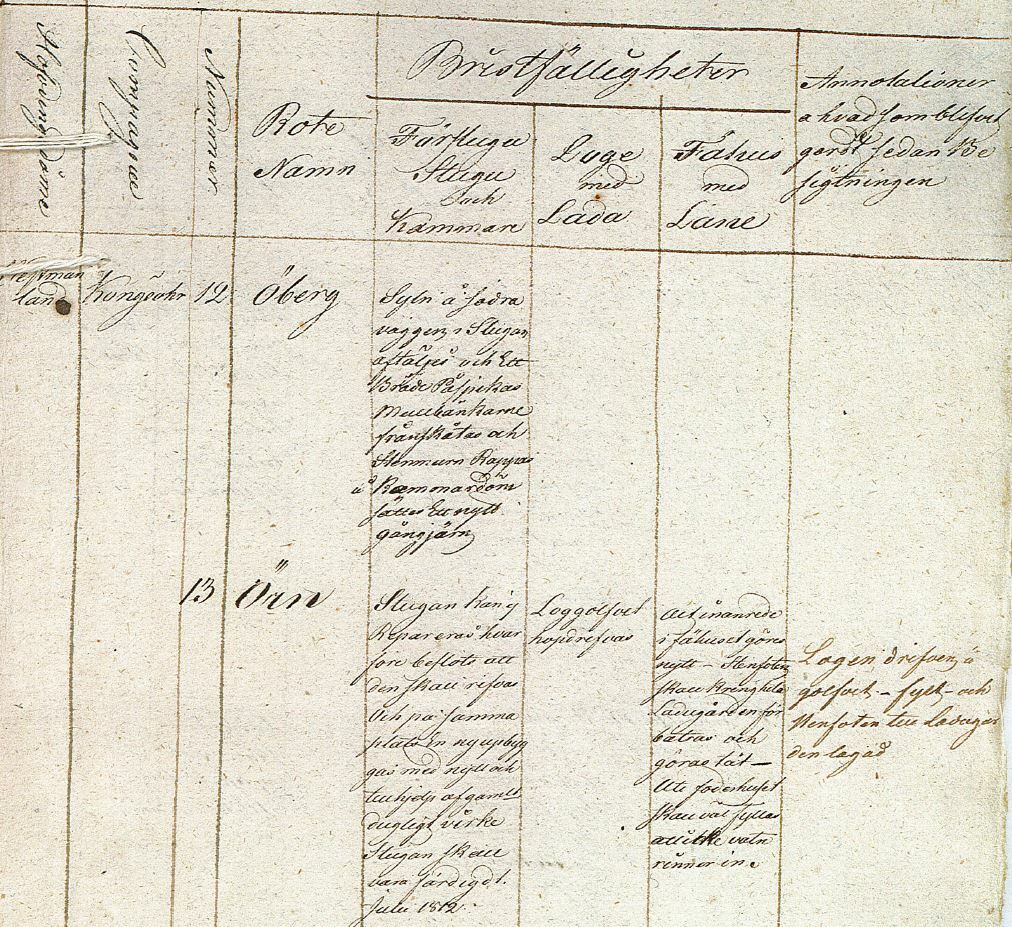 Höfdingedöme
Compagnie
Nummer
Rote
Namn
Bristfälligheter
Förstuga
Stuga
och
Kammare
Loge
med
Lada
Fähus
med
Läne
Annotationer
a hvad som blifvit
gordt sedan Be
sigtningen
Westman
land
Kongsöhr
12
Öberg
Syln å södra
väggen i Stugan
aftäljes och Ett
Bräde Påspikas
Mullbänkarne
frånskåtas och
Stenmurn Rappas
å Kammardörn
sättes Ett nytt
gångjärn
13
Örn
Stugan kan ej
Repareras hvar
före beslöts att
den skall rifvas
Och på samma
plats En ny upbyg
gas med nytt och
till hjelp af gamlt
dugligt virke
Stugan skall
vara färdig d. 1.
Julii 1812.
Loggolfvet
hopdrifvas
Alt inanrede
i fähuset göres
nytt – Stenfoten
skall kring hela
Ladugården för
bätras och
göras tät –
Uti foderhuset
skall väl fyllas
att icke vatn
rinner in.
Logen drifven, å
golfvet – fylt – och
Stenfoten till Ladugår
den lagad